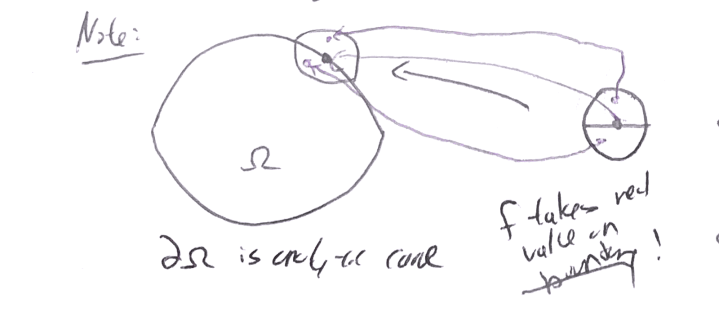 Note:
Ω
∂Ω is analytic curve
f takes real
value on
boundary!